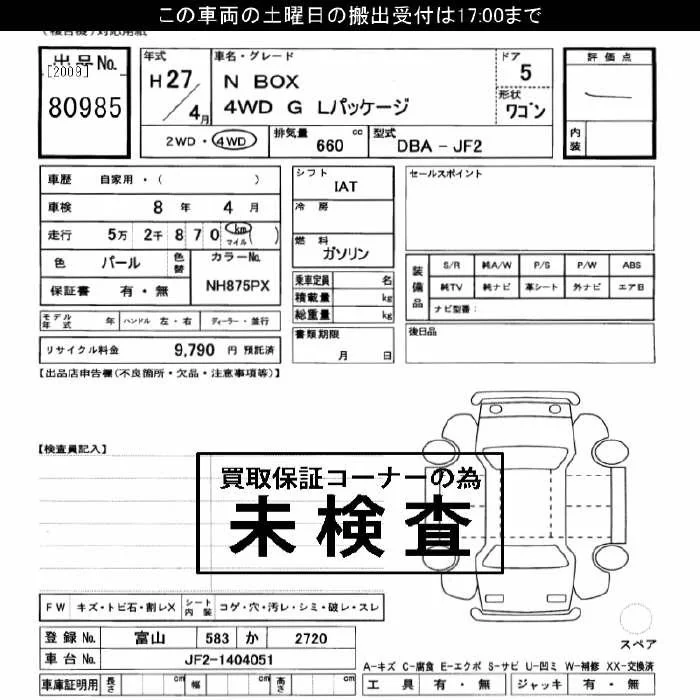 この車両の土曜日の搬出受付は17:00まで
出品No.
[2009]
80985
年式
H27/4月
車名・グレード
N BOX
4WD G Lパッケージ
ドア
5
形状
ワゴン
評価点
内装
2WD・4WD
排気量 660 cc
型式 DBA-JF2
車歴 自家用・( )
車検 8年 4月
走行 5万 2千 8 7 0 km マイル ( )
色 パール
色替
カラーNo.
NH875PX
保証書 有・無
モデル年式 年
ハンドル 左・右
ディーラー・並行
リサイクル料金 9,790 円 預託済
シフト
IAT
冷房
燃料
ガソリン
乗車定員 名
積載量 kg
総重量 kg
書類期限
月 日
セールスポイント
装備品
S/R 純A/W P/S P/W ABS
純TV 純ナビ 革シート 外ナビ エアB
ナビ型番:
後日品
【出品店申告欄(不良箇所・欠品・注意事項等)】
【検査員記入】
買取保証コーナーの為
未検査
FW キズ・トビ石・割レX
シート内装 コゲ・穴・汚レ・シミ・破レ・スレ
登録No. 富山 583 か 2720
車台No. JF2-1404051
車庫証明用 長さ cm 幅 cm 高さ cm
スペア
A-キズ C-腐食 E-エクボ S-サビ U-凹ミ W-補修 XX-交換済
工具 有・無 ジャッキ 有・無